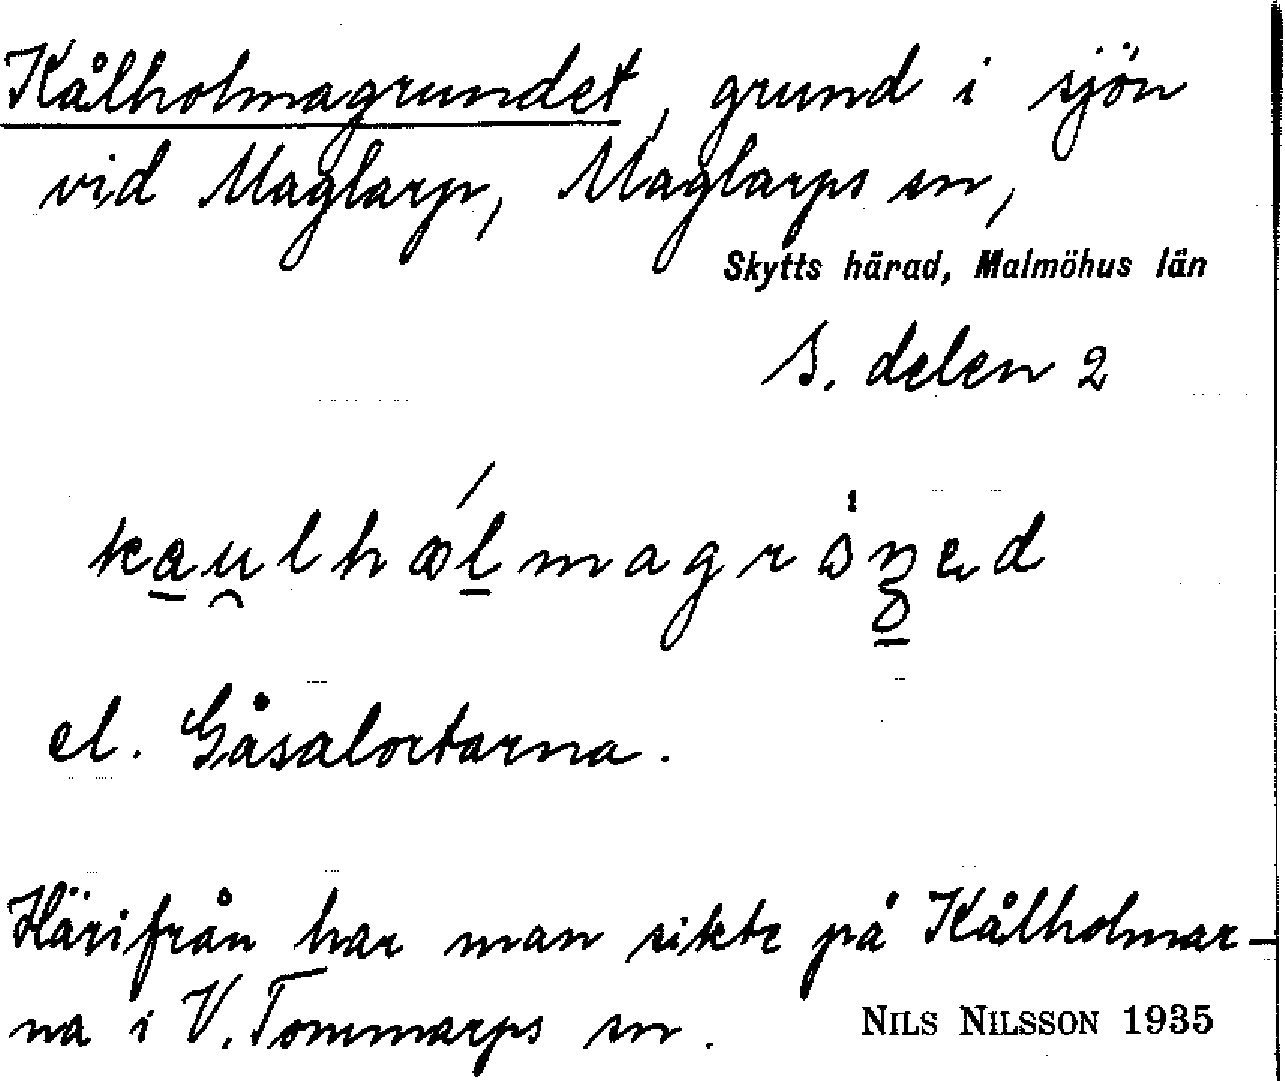 Kålholmagrundet, grund i sjön
vid Maglarp, Maglarps sn,
Skytts härad, Malmöhus län
S. delen 2
el. Gåsalortarna.
Härifrån har man sikte på Kålholmar-
na i V. Tommarps sn.
NILS NILSSON 1935